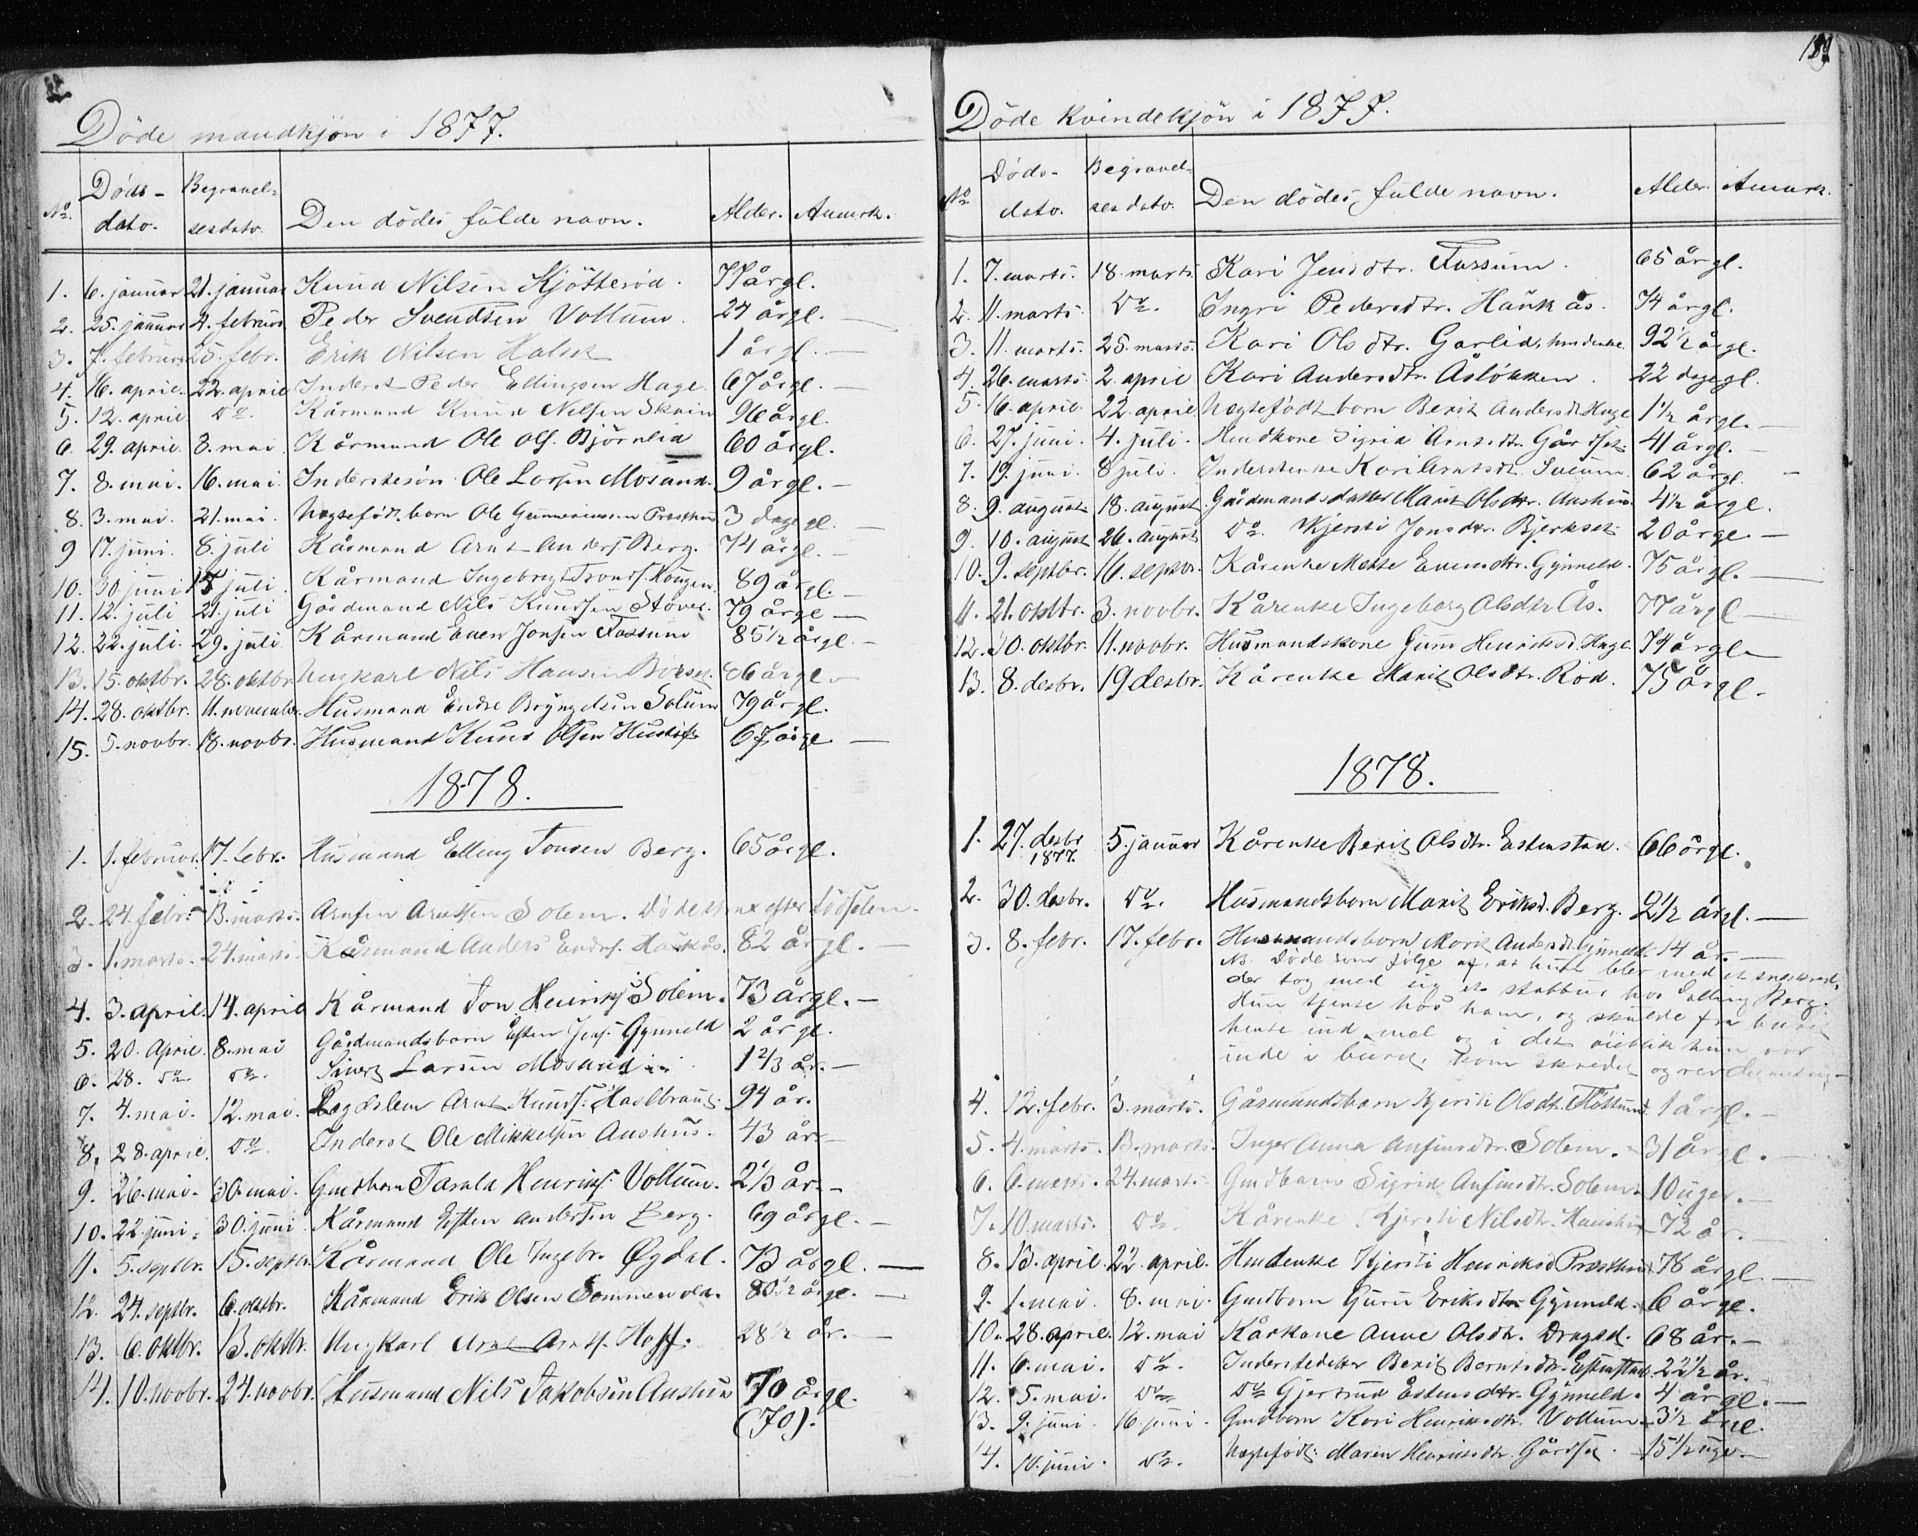 189
Döde mandkjön i 1877.
No. Döds-dato. Begravelsesdato. Den dödes fulde navn. Alder. Anmerk.
1. 6. januar 21. januar Knud Nilsen Kjötteröd. 77 årgl.
2. 25. januar 4. februar Peder Svendsen Vollum. 24 årgl. —
3. 7. februar 25. febr. Erik Nilsen Halset 1 årgl. —
4. 16. april. 22. april Inderst Peder Ellingsen Hage. 67 årgl. —
5. 12. april do. Kårmand Knud Nilsen Skrin 96 årgl.
6. 29. april. 8. mai Kårmand Ole Ols. Björnlid 60 årgl.
7. 8. mai. 16. mai Inderstesön Ole Larsen Mosand. 9 årgl. —
8. 3. mai. 21. mai. Uægtefödt barn Ole 3 dage gl. —
9 17. juni. 8. juli Kårmand Arnt Anders. Berg. 74 årgl. —
10. 30. juni 15 juli Kårmand Ingebrigt Tronds. Hougen 89 årgl. —
11. 12. juli 21. juli Gårdmand Nils Knudsen Stöver. 79 årgl —
12. 22. juli. 29. juli Kårmand Even Jonsen Fossum 85 1/2 årgl. —
13. 15. oktbr. 28. oktbr. Ungkarl Nils Hansen 86 årgl. —
14. 28. oktbr. 11. november. Husmand Endre Bryngelsen Solum 79 årgl.
15. 5. novbr. 18. novbr. Husmand Knud Olsen 67 årgl —
1878.
1. 1. februar. 17. febr. Husmand Elling Jonsen Berg. 65 årgl.
2. 24. febr. 13. marts. Anfin Arntsen Solem. Död strax efter födselen.
3. 1. marts. 24. marts Kårmand Anders Endres. Haukås. 82 årgl. —
4. 3. april. 14. april Kårmand Jon Henriks. Solem. 73 årgl. —
5. 20. april. 8. mai Gårdmandsbarn Esten Jens. Gynneld 2 årgl.
6. 28. do. do. Sivert Larsen Mosand 1 2/3 år. —
7. 4. mai. 12. mai. Lægdslem Arnt Knuds. 94 år.
8. 28. april. do. Inderst Ole Mikkelsen Aushus. 43 år. —
9. 26. mai. 30. mai. Gmdbarn Tarald Henriks. Vollum. 2 1/3 år. —
10. 22. juni. 30. juni Kårmand Esten Andersen Berg. 69 årgl. —
11. 5. septbr. 15. septbr. Kårmand Ole Ingebr. Øgdal. 73 årgl. —
12. 24. septbr. 6. oktbr. Kårmand Erik Olsen 80 1/2 årgl. —
13. 6. oktbr. 13. oktbr. Ungkarl Arnt Arnts. Hoff. 28 1/2 år. —
14. 10. novbr. 24. novbr. Husmand Nils Jakobsen Aushus 70 årgl.
(70).
Döde kvindekjön i 1877.
No. Döds-dato. Begravelsesdato. Den dödes fulde navn. Alder. Anmerk.
1. 7. marts. 18. marts Kari Jensdtr. Fossum. 65 årgl.
2. 11. marts. do. Ingri Pedersdtr. Haukås. 74 årgl.
3. 11. marts. 25. marts. Kari Olsdtr. Garlid, 92 1/2 årgl.
4. 26. marts. 2. april Kari Andersdtr. Åslökken. 22 dage gl.
5. 16. april. 22. april Uægtefödt barn Berit Andersdt. Hage 1 1/2 årgl. —
6. 27. juni. 4. juli. Sigrid Arntsdtr. Gårdset. 41 årgl. —
7. 19. juni. 8 juli. Inderstenke Kari Arntsdtr. 62 årgl —
8. 9. august. 18. august Gårdmandsdatter Marit Olsdtr. Aushus. 4 1/2 årgl.
9. 10. august 26. august do. Kjersti Jonsdtr. Bjerkset. 20 årgl. —
10. 9. septbr. 16. septbr. Kårenke Mette Evensdtr. Gynneld. 75 årgl. —
11. 21. oktbr. 3. novbr. Kårenke Ingeborg Olsdtr Ås. 77 årgl —
12. 30. oktbr. 11. novbr. Husmandskone Guru Henriksd. Hage 74 årgl. —
13. 8. desbr. 19 desbr. Kårenke Marit Olsdtr. Röd. 75 årgl.
1878.
1. 27. desbr 1877. 5. januar Kårenke Berit Olsdtr. Estenstad. 66 årgl.
2. 30. desbr. do. Husmandsbarn Marit Eriksd. Berg. 2 1/2 årgl. —
3. 8. febr. 17. febr. Husmandsbarn Marit Andersdt. Gynneld. 14 år. —
NB. Döde som fölge af, at hun blev med et sneskred,
der tog med sig et stabbur hos Elling Berg.
Hun tjente hos ham, og skulde fra buret
hente ind mel og i det öieblik hun var
inde i buret, kom skredet og rev det med sig. —
4. 12. febr. 3. marts. Gårmandsbarn Kjersti Olsdtr. 1 årgl. —
5. 4. marts. 13. marts. Inger Anna Anfinsdtr. Solem. 31 årgl.
6. 6. marts. 24. marts. Gmdbarn Sigrid Anfinsdtr. Solem. 10 uger. —
7. 10. marts. do. Kårenke Kjersti Nilsdtr. 72 år. —
8. 13. april. 22. april. Kjersti Henriksd. 78 årgl. —
9. 1. mai. 8. mai. Gmdbarn Guru Eriksdtr. Gynneld. 6 årgl.
10. 28. april. 12. mai Kårkone Anne Olsdtr. 68 år. —
11. 6. mai. do. Inderstedatter Berit Berntsdtr. Estenstad. 22 1/2 år.
12. 5. mai. do do Gjertrud Estensdtr. Gynneld. 4 årgl. —
13. 9. juni. 16. juni. Gmdbarn Kari Henriksdtr. Vollum. 3 1/2 årgl.
14. 10. juni. do. Uægtefödt. Maren Henriksdtr. Gårdset. 15 1/2 uge. —